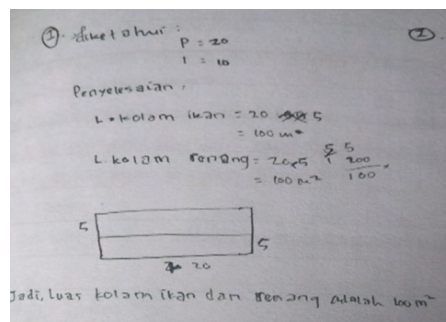 ① diketahui :
②.
P = 20
l = 10
Penyelesaian,
L. kolam ikan = 20 5
= 100 m²
L. kolam renang = 20x5
= 100 m²
5
200
100
5
5
20
Jadi, Luas kolam ikan dan renang adalah 100 m²